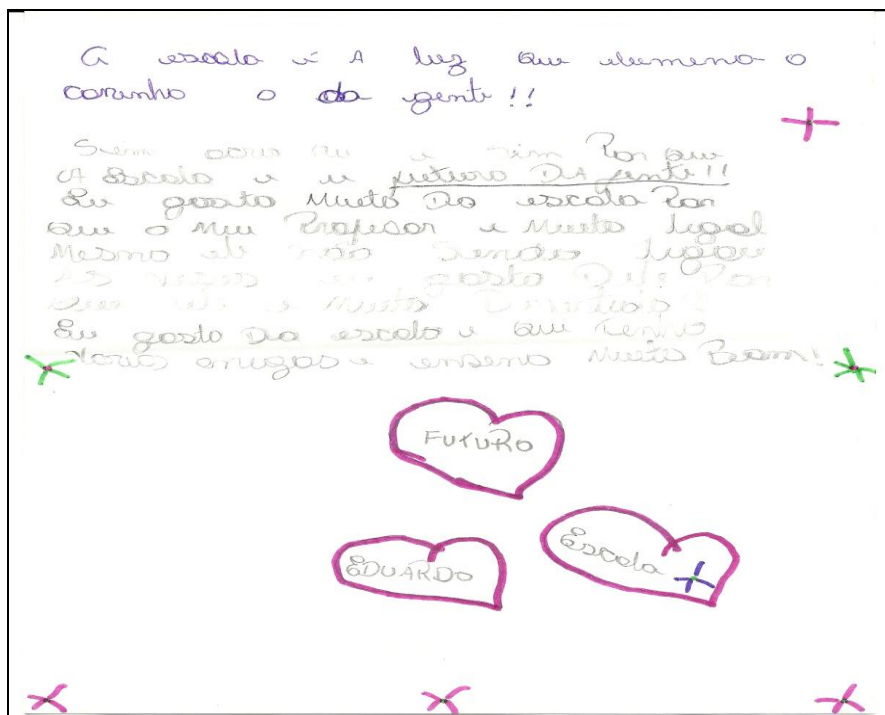 A escola é A luz que elumena o
carinho o da gente !!
Sem ela eu e sim Por que
A Escola e u futuro DA gente!!
Eu gosto Muito Da escola Por
que o meu Profesor e Muito legal
Mesmo ele não Sendo legau
As vezes eu gosto Dele Por
que ele e muito
Eu gosto Da escola e que Tenho
varios amigos e ensena Muito Beam!
FUTURO
EDUARDO
Escola